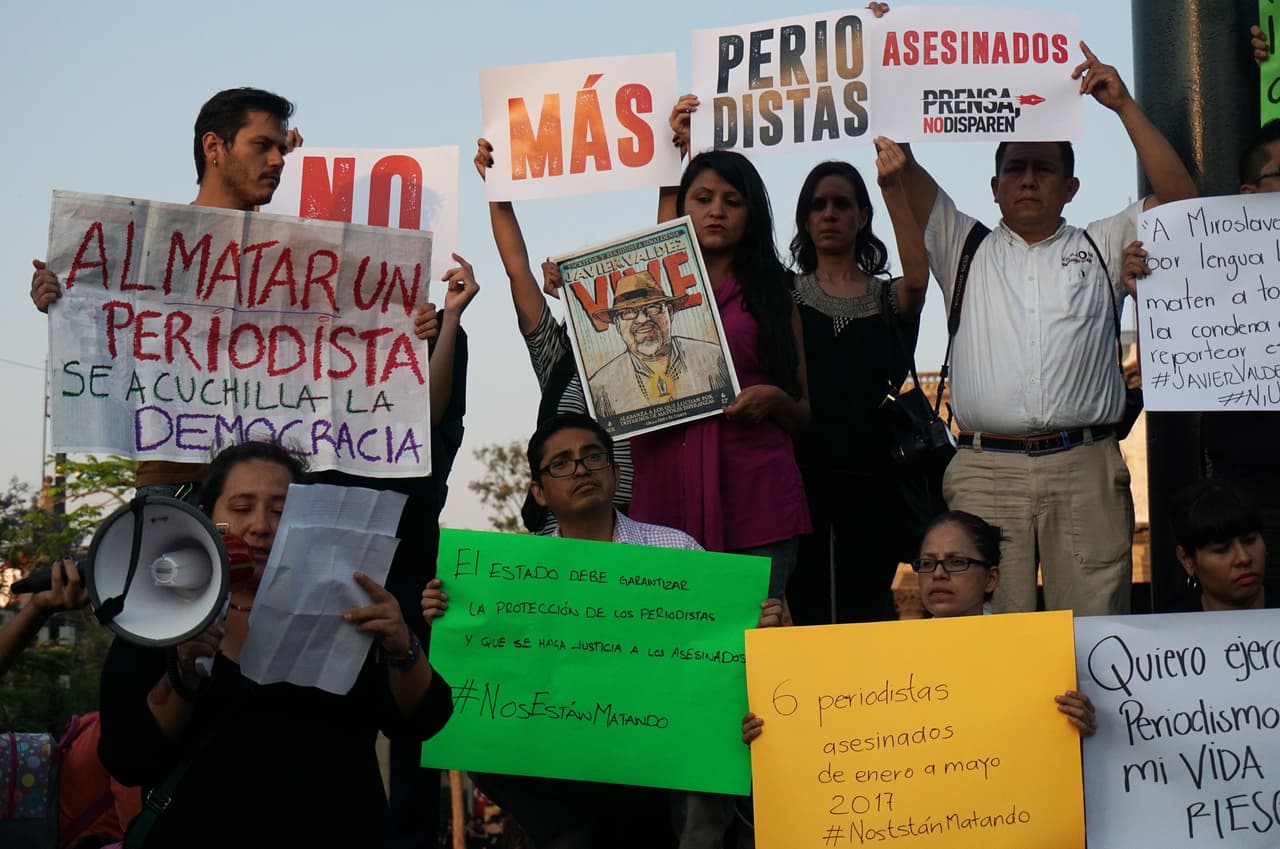 NO
MÁS
PERIO
DISTAS
ASESINADOS
PRENSA,
NO DISPAREN
AL MATAR UN
PERIODISTA
SE ACUCHILLA LA
DEMOCRACIA
JAVIER VALDEZ
VIVE
A MIROSLAVA
por lengua l
maten a to
la condena
reportear e
#JAVIERVALDE
#NiU
El ESTADO DEBE GARANTIZAR
LA PROTECCIÓN DE LOS PERIODISTAS
Y QUE SE HAGA JUSTICIA A LOS ASESINADOS
#NosEstánMatando
6 periodistas
asesinados
de enero a mayo
2017
#NoststánMatando
Quiero ejerc
Periodismo
mi VIDA
RIESG